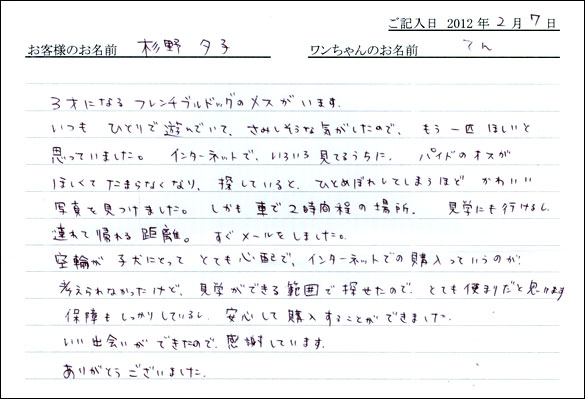 ご記入日 2012年2月7日
お客様のお名前 杉野 夕子 ワンちゃんのお名前 てん
3才になる フレンチブルドッグのメスがいます。
いつも ひとりで遊んでいて、さみしそうな気がしたので、もう一匹ほしいと
思っていました。 インターネットで、いろいろ見てるうちに、 パイドのオスが
ほしくてたまらなくなり、探していると、ひとめぼれしてしまうほど かわいい
写真を見つけました。 しかも 車で2時間程の場所。 見学にも行けるし
連れて帰れる距離。 すぐメールをしました。
空輸が 子犬にとって とても心配で、インターネットでの購入っていうのが
考えられなかったけど、見学ができる範囲で探せたので、とても便利だと思います
保障もしっかりしているし、安心して購入することができました。
いい出会いができたので、感謝しています。
ありがとうございました。